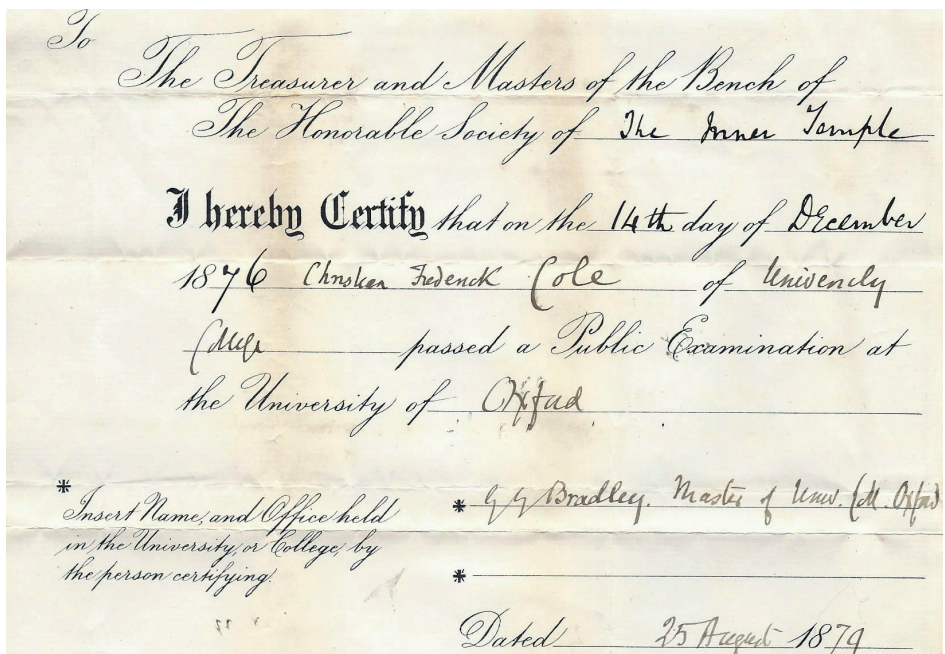 To
The Treasurer and Masters of the Bench of
The Honorable Society of The Inner Temple
I hereby Certify that on the 14th day of December
1876 Christian Frederick Cole of University
College passed a Public Examination at
the University of Oxford
*
Insert Name, and Office held
in the University, or College, by
the person certifying.
* G G Bradley. Master of Univ. Coll. Oxford
*
Dated 25 August 1879